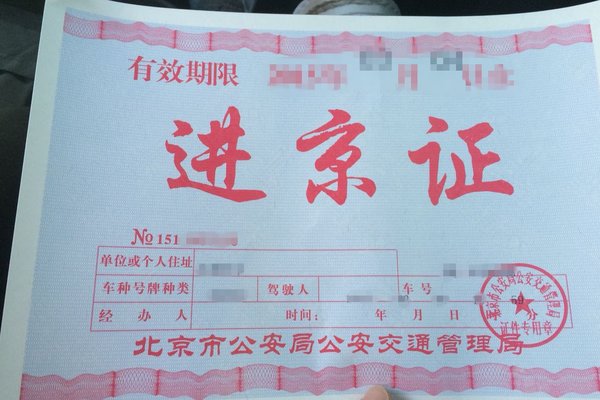 有效期限
进京证
No 151
单位或个人住址
车种号牌种类 驾驶人 车号
经办人 时间： 年 月 日 分
北京市公安局公安交通管理局
北京市公安局公安交通管理局
证件专用章